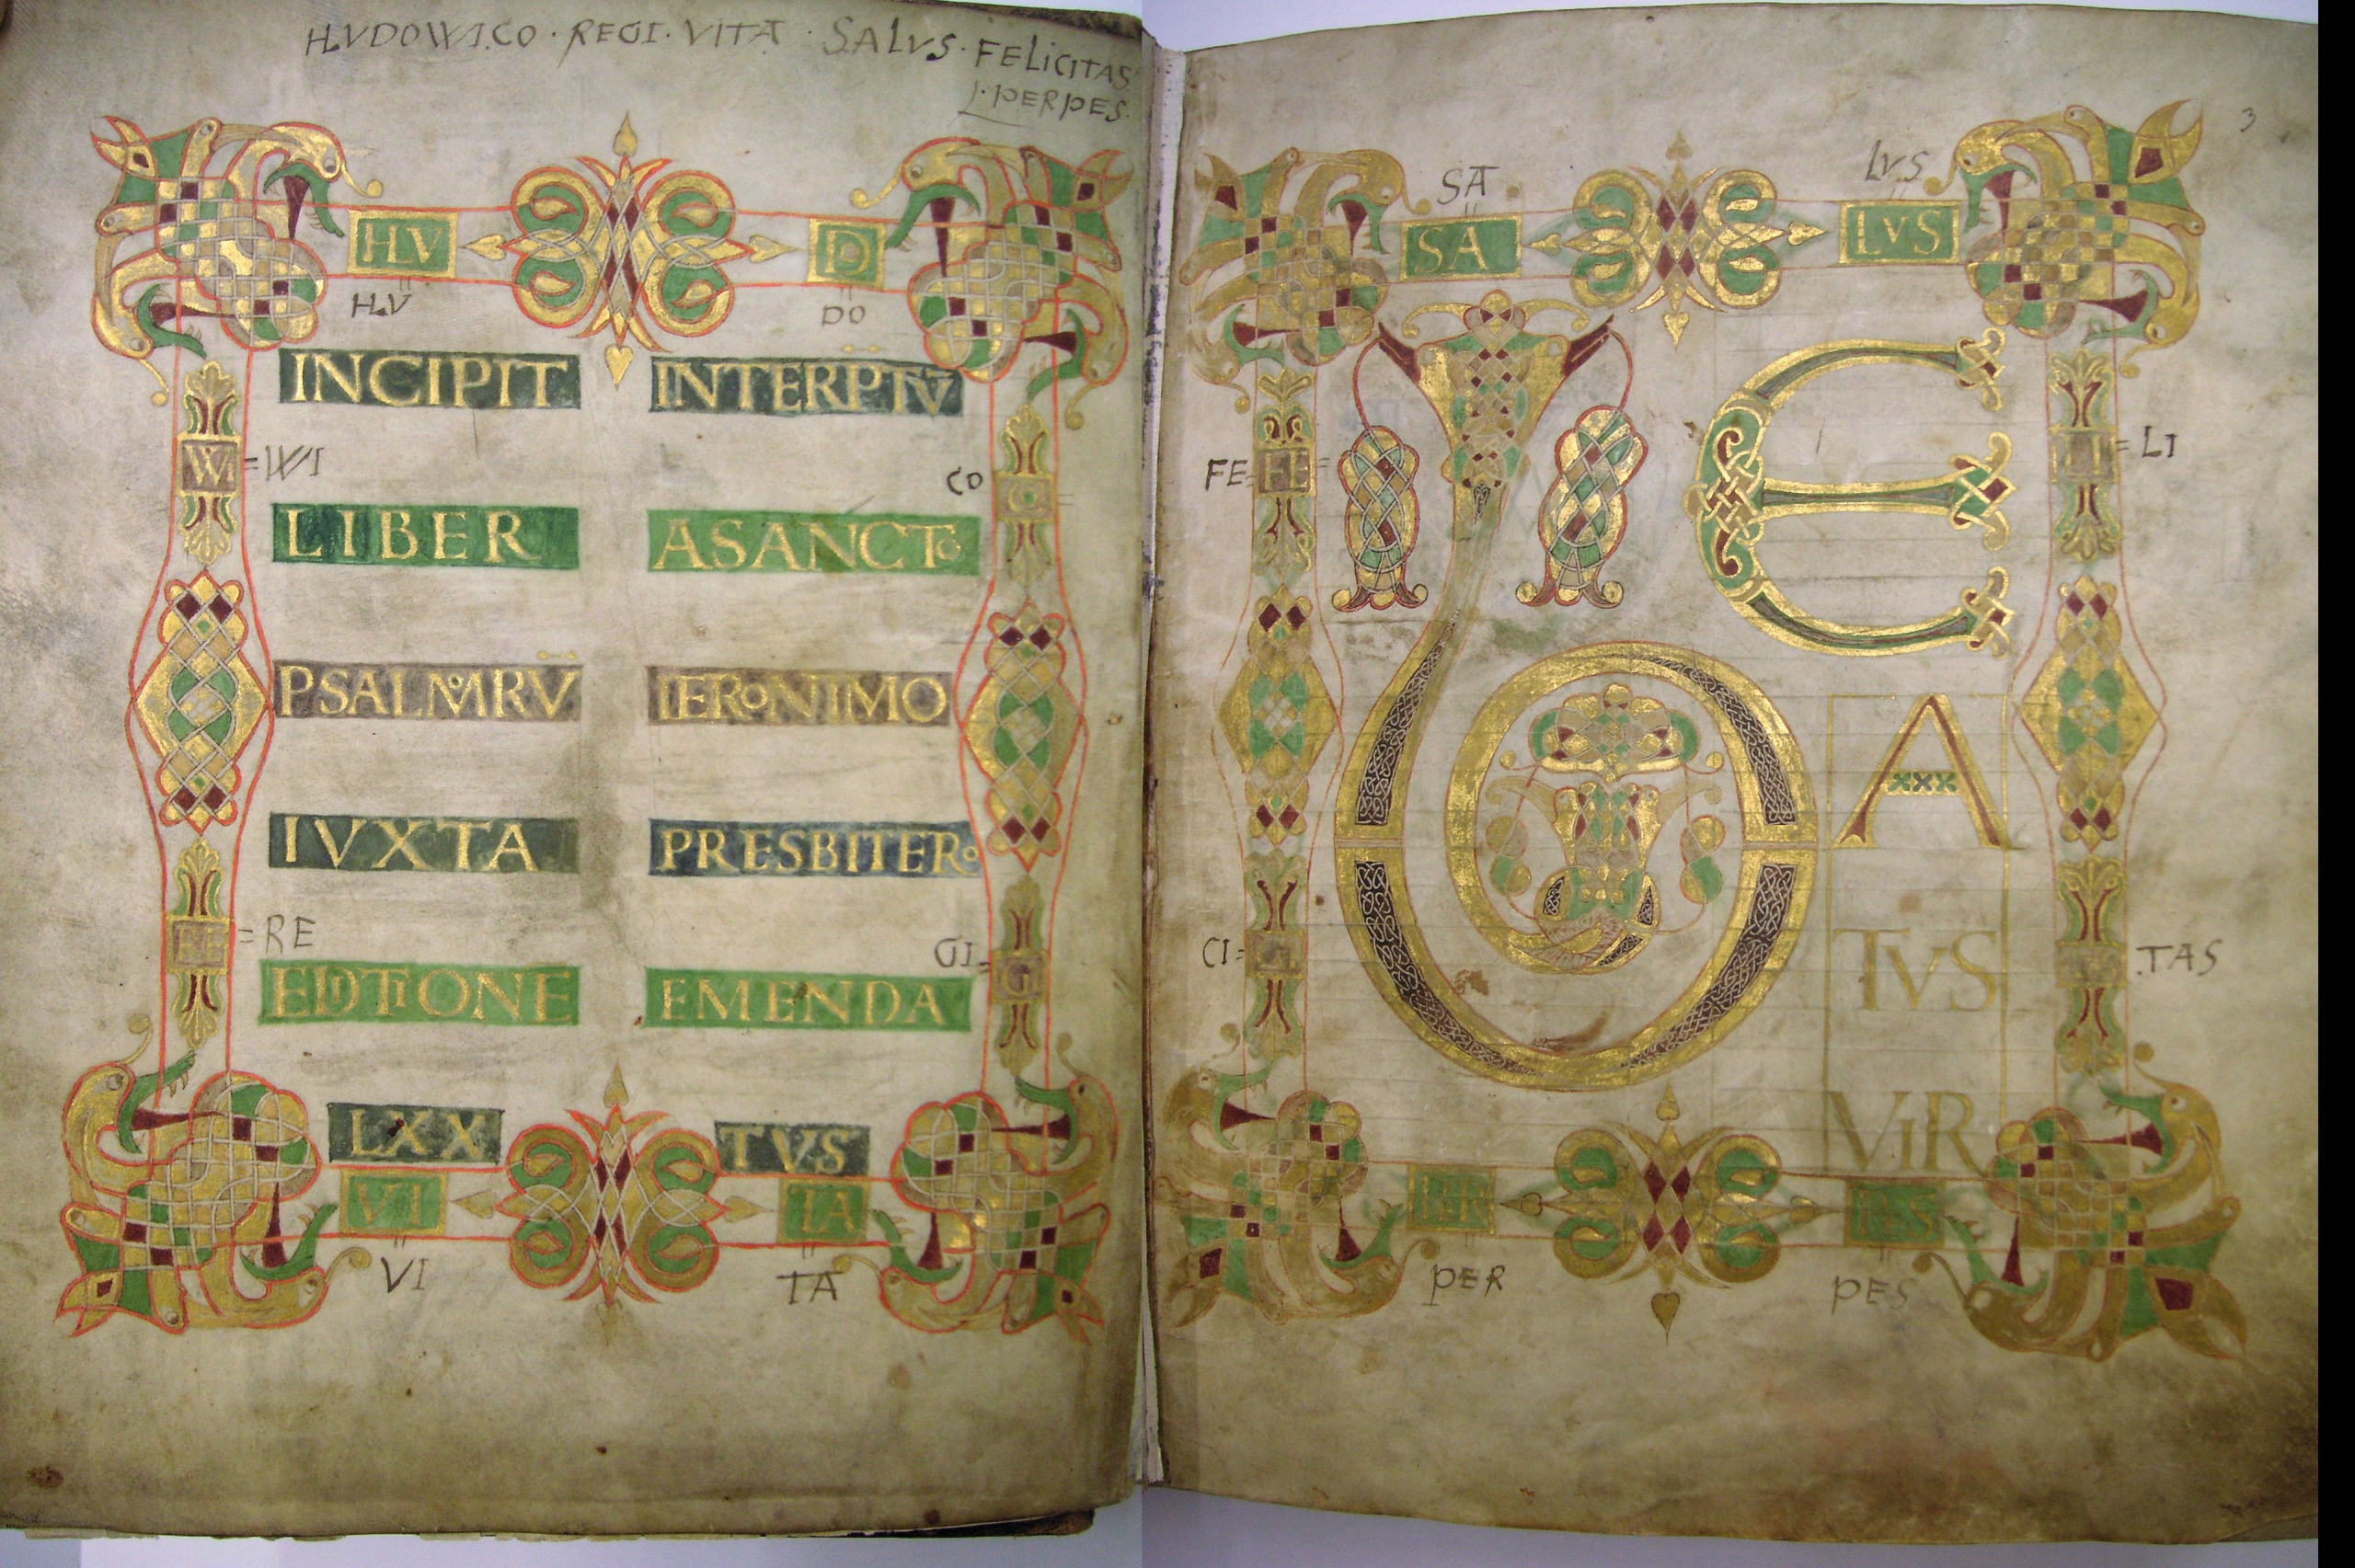 HVDOWICO · REGI · VITA · SALVS · FELICITAS
PERPES.
HV D
HV DO
INCIPIT INTERPTV̄
W =WI CO
LIBER ASANCTo
PSALMoRV̄ IERoNIMO
IVXTA PRESBITERo
RE =RE GI G
EDITIONE EMENDA
LXX TVS
VI TA
VI TA
3
SA LVS
SA LVS
FE= FE LI =LI
B E
A
TVS
CI= TAS
VIR
PER PES
PER PES